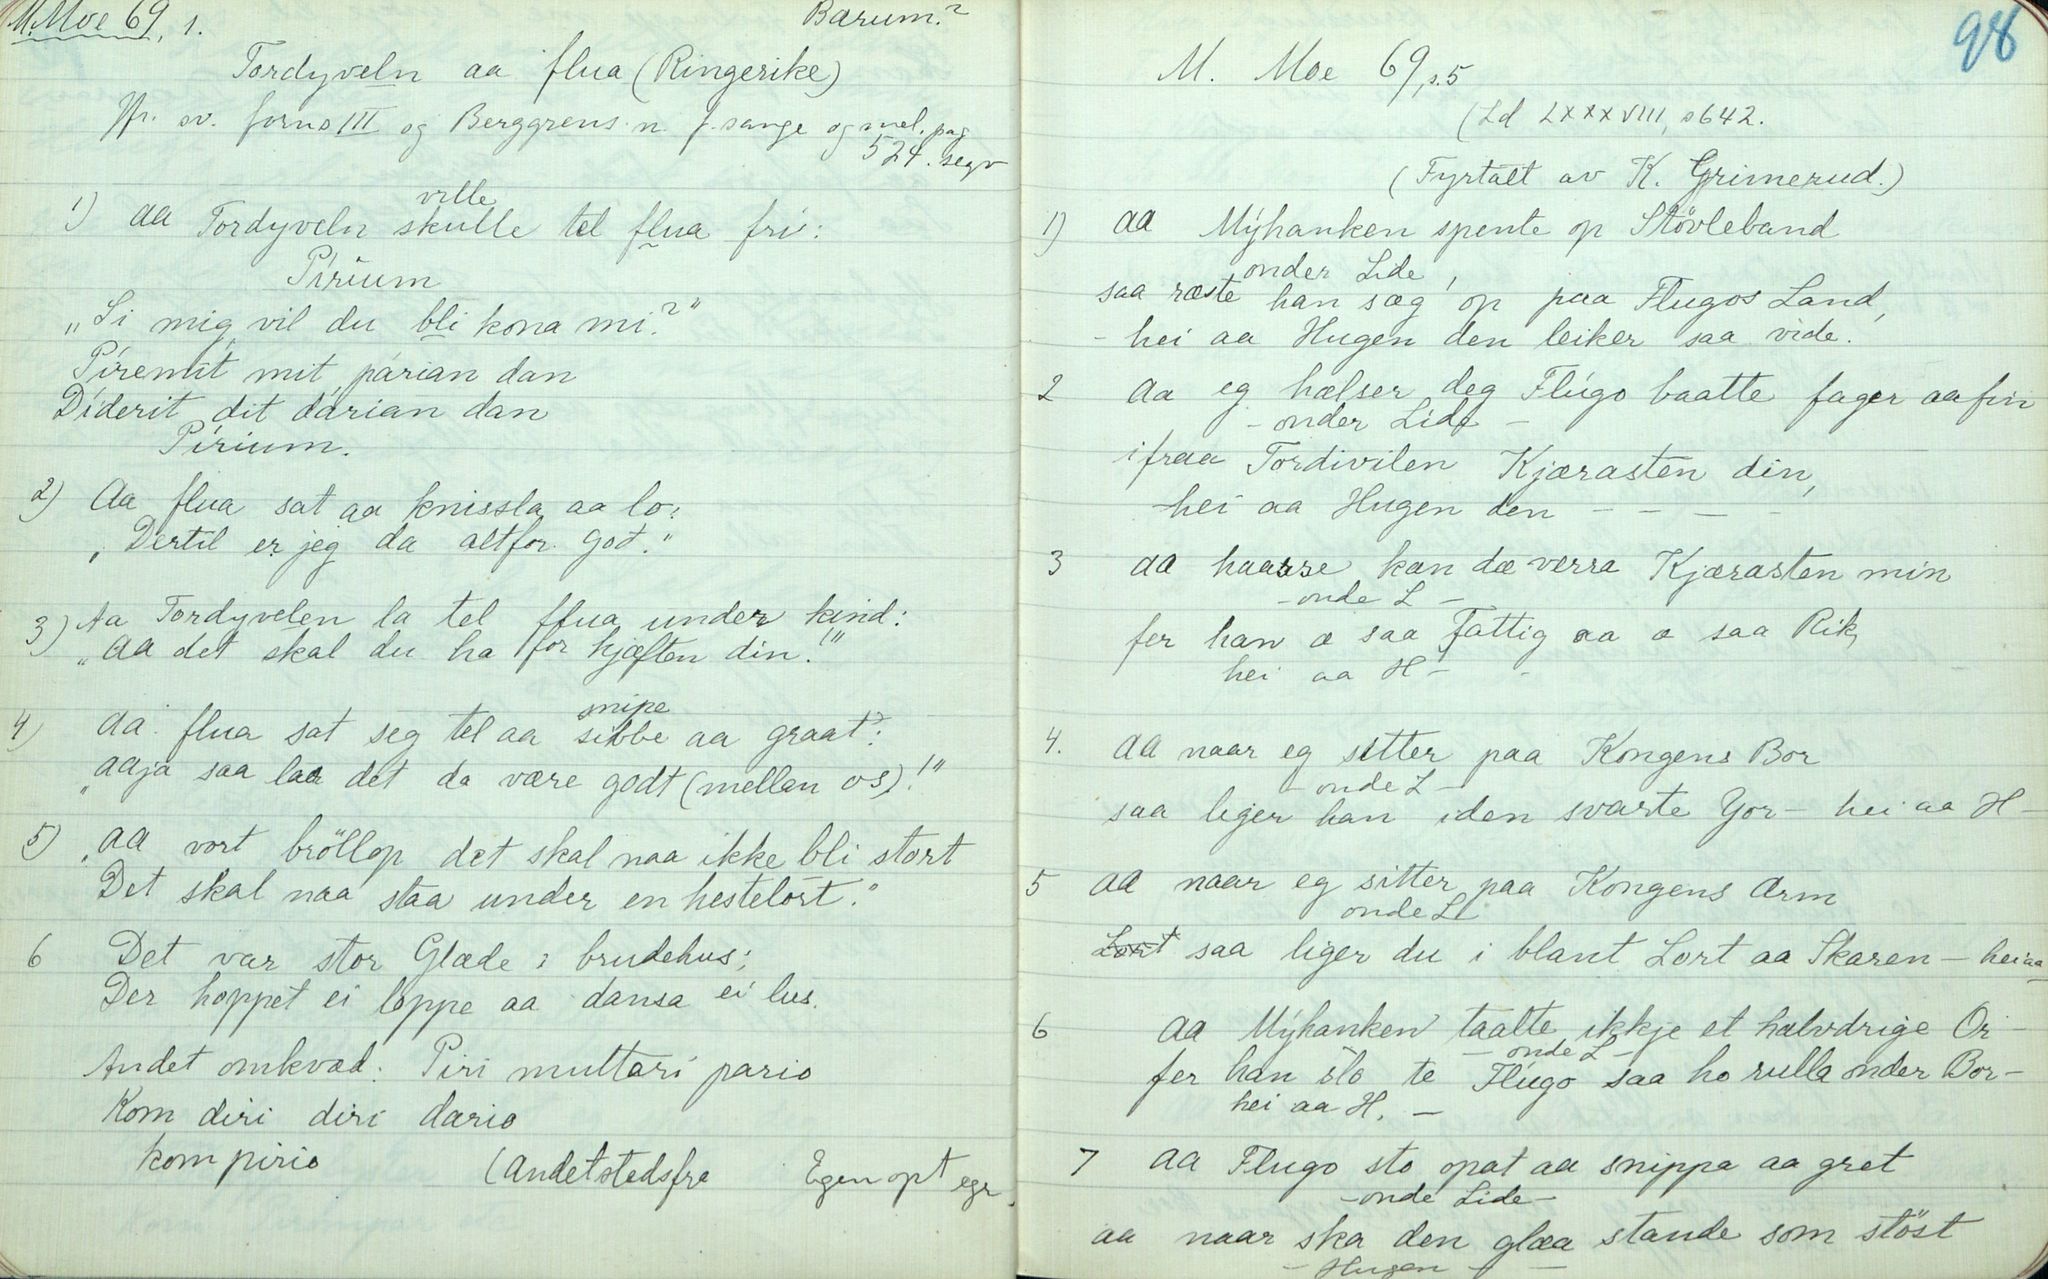 M. Moe 69, 1.
Bærum.?
Tordyveln aa flua (Ringerike)
Jfr. sv. forns III og Berggrens n. f. sange og mel. pag
524. segv
ville
1) aa Tordyveln skulle tel flua fri:
Pirium
„Si mig, vil du bli kona mi?"
Piremit mit, parian dan
Diderit dit darian dan
Pirium.
2) Aa flua sat aa knissla aa lo:
„Dertil er jeg da altfor god."
3) Aa Tordyvelen la tel flua under kind:
„aa det skal du ha for kjæften din!"
snipe
4) aa flua sat seg tel aa sibbe aa graat:
„aaja saa laa det da være godt (mellan os)!"
5) „aa vort bröllop det skal naa ikke bli stort
Det skal naa staa under en hestelort."
6 Det var stor Glæde i brudehus;
Der hoppet ei loppe aa dansa ei lus.
Andet omkvæd: Piri muttari pario
Kom diri diri dario
kom pirio
(Andetstedsfra Egen opt egr.
98
M. Moe 69, s.5
(Ld LXXXVIII, s 642.
(Fyrtalt av K. Grimerud.)
1) aa Mýhanken spente op Stövleband
onder Lide
saa ræste han sæg op paa Flugos Land,
- hei aa Hugen den leiker saa vide.
2 aa eg hælser deg Flúgo baatte fager aa fin
- onder Lide -
ifraa Tordivilen Kjærasten din,
- hei aa Hugen den - - - -
3 aa haasse kan dæ verra Kjærasten min
- onde L -
fer han æ saa Fattig aa æ saa Rik,
hei aa H - -
4. aa naar eg sitter paa Kongens Bor
- onde L -
saa liger han iden svarte Yor - hei aa H -
5 aa naar eg sitter paa Kongens Arm
onde L
Lort saa liger du i blant Lort aa Skaren - hei aa
6 aa Mýhanken taalte ikkje et halvdrige Or -
- onde L -
fer han slo te Flúgo saa ho rulla onder Bor -
hei aa H. -
7 aa Flugo sto opat aa snippa aa gret
- onde Lide -
aa naar ska den glæa stande som stöst
- Hugen - -